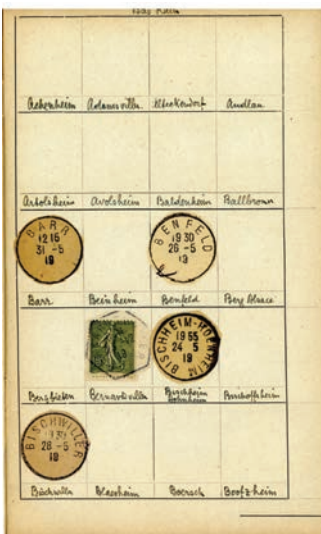 Bas Rhin
Achenheim Adamswiller Alteckendorf Andlau
Artolsheim Avolsheim Baldenheim Ballbronn
BARR
12 15
31 -5
19
BENFELD
19 30
26 -5
19
Barr Beinheim Benfeld Berg Alsace
BISCHHEIM-HOENHEIM
19 55
24 5
19
Bergbieten Bernardswiller Bischheim Bischoffsheim
Hoenheim
BISCHWILLER
28 -5
19
Bischwiller Blaesheim Boersch Boofzheim